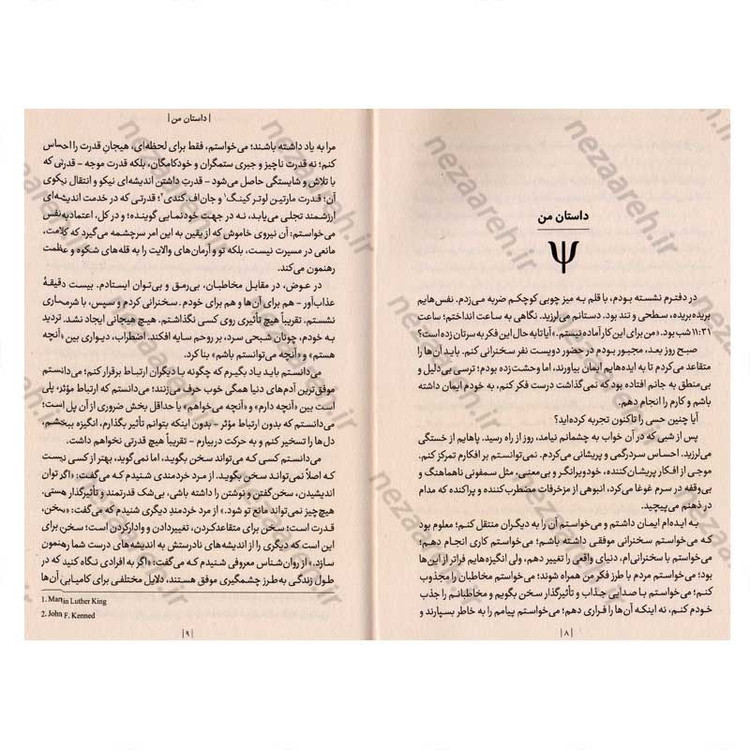 داستان من
ψ
در دفترم نشسته بودم، با قلم به میز چوبی کوچکم ضربه می‌زدم. نفس‌هایم
بریده‌بریده، سطحی و تند بود. دستانم می‌لرزید. نگاهی به ساعت انداختم؛ ساعت
۱۱:۳۱ شب بود. «من برای این کار آماده نیستم.» آیا تا به حال این فکر به سرتان زده است؟
صبح روز بعد، مجبور بودم در حضور دویست نفر سخنرانی کنم. باید آن‌ها را
متقاعد می‌کردم تا به ایده‌هایم ایمان بیاورند، اما وحشت‌زده بودم؛ ترسی بی‌دلیل و
بی‌منطق به جانم افتاده بود که نمی‌گذاشت درست فکر کنم، به خودم ایمان داشته
باشم و کارم را انجام دهم.
آیا چنین حسی را تاکنون تجربه کرده‌اید؟
پس از شبی که در آن خواب به چشمانم نیامد، روز از راه رسید. پاهایم از خستگی
می‌لرزید. احساس سردرگمی و پریشانی می‌کردم. نمی‌توانستم بر افکارم تمرکز کنم.
موجی از افکار پریشان‌کننده، خودویرانگر و بی‌معنی، مثل سمفونی ناهماهنگ و
بی‌وقفه در سرم غوغا می‌کرد، انبوهی از مزخرفات مضطرب‌کننده و پراکنده که مدام
در ذهنم می‌پیچید.
به ایده‌ام ایمان داشتم و می‌خواستم آن را به دیگران منتقل کنم؛ معلوم بود
که می‌خواستم سخنرانی موفقی داشته باشم؛ می‌خواستم کاری انجام دهم؛
می‌خواستم با سخنرانی‌ام، دنیای واقعی را تغییر دهم، ولی انگیزه‌هایم فراتر از این‌ها
بود؛ می‌خواستم مردم با طرز فکر من همراه شوند؛ می‌خواستم مخاطبان را مجذوب
کنم؛ می‌خواستم با صدایی جذاب و تأثیرگذار سخن بگویم و مخاطبانم را جذب
خودم کنم، نه اینکه آن‌ها را فراری دهم؛ می‌خواستم پیامم را به خاطر بسپارند و
| ۸ |
| داستان من |
مرا به یاد داشته باشند؛ می‌خواستم، فقط برای لحظه‌ای، هیجان قدرت را احساس
کنم؛ نه قدرت ناچیز و جبری ستمگران و خودکامگان، بلکه قدرت موجه - قدرتی که
با تلاش و شایستگی حاصل می‌شود - قدرت داشتن اندیشه‌ای نیکو و انتقال نیکوی
آن؛ قدرت مارتین لوتر کینگ۱ و جان‌اف.کندی۲؛ قدرتی که در خدمت اندیشه‌ای
ارزشمند تجلی می‌یابد، نه در جهت خودنمایی گوینده؛ و در کل، اعتمادبه‌نفس
می‌خواستم؛ آن نیروی خاموش که از یقین به این امر سرچشمه می‌گیرد که کلامت،
مانعی در مسیرت نیست، بلکه تو و آرمان‌های والایت را به قله‌های شکوه و عظمت
رهنمون می‌کند.
در عوض، در مقابل مخاطبان، بی‌رمق و بی‌توان ایستادم. بیست دقیقهٔ
عذاب‌آور - هم برای آن‌ها و هم برای خودم. سخنرانی کردم و سپس، با شرمساری
نشستم. تقریباً هیچ تأثیری روی کسی نگذاشتم. هیچ هیجانی ایجاد نشد. تردید
به خودم، چونان شبحی سرد، بر روحم سایه افکند. اضطراب، دیواری بین «آنچه
هستم» و «آنچه می‌توانستم باشم» بنا کرد.
می‌دانستم باید یاد بگیرم که چگونه با دیگران ارتباط برقرار کنم؛ می‌دانستم
موفق‌ترین آدم‌های دنیا همگی خوب حرف می‌زنند؛ می‌دانستم که ارتباط مؤثر، پلی
است بین «آنچه دارم» و «آنچه می‌خواهم» یا حداقل بخش ضروری از آن پل است؛
می‌دانستم که بدون ارتباط مؤثر - بدون اینکه بتوانم تأثیر بگذارم، انگیزه ببخشم،
دل‌ها را تسخیر کنم و به حرکت دربیارم - تقریباً هیچ قدرتی نخواهم داشت.
می‌دانستم کسی که می‌تواند سخن بگوید، اما نمی‌گوید، بهتر از کسی نیست
که اصلاً نمی‌تواند سخن بگوید. از مرد خردمندی شنیدم که می‌گفت: «اگر توان
اندیشیدن، سخن‌گفتن و نوشتن را داشته باشی، بی‌شک قدرتمند و تأثیرگذار هستی.
هیچ‌چیز نمی‌تواند مانع تو شود.» از مرد خردمندِ دیگری شنیدم که می‌گفت: «سخن،
قدرت است؛ سخن برای متقاعدکردن، تغییردادن و وادارکردن است؛ سخن برای
این است که دیگری را از اندیشه‌های نادرستش به اندیشه‌های درست شما رهنمون
سازد.» از روان‌شناس معروفی شنیدم که گفت: «اگر به افرادی نگاه کنید که در
طول زندگی به‌طرز چشمگیری موفق هستند، دلایل مختلفی برای کامیابی آن‌ها
1. Martin Luther King
2. John F. Kenned
| ۹ |
nezaareh.ir